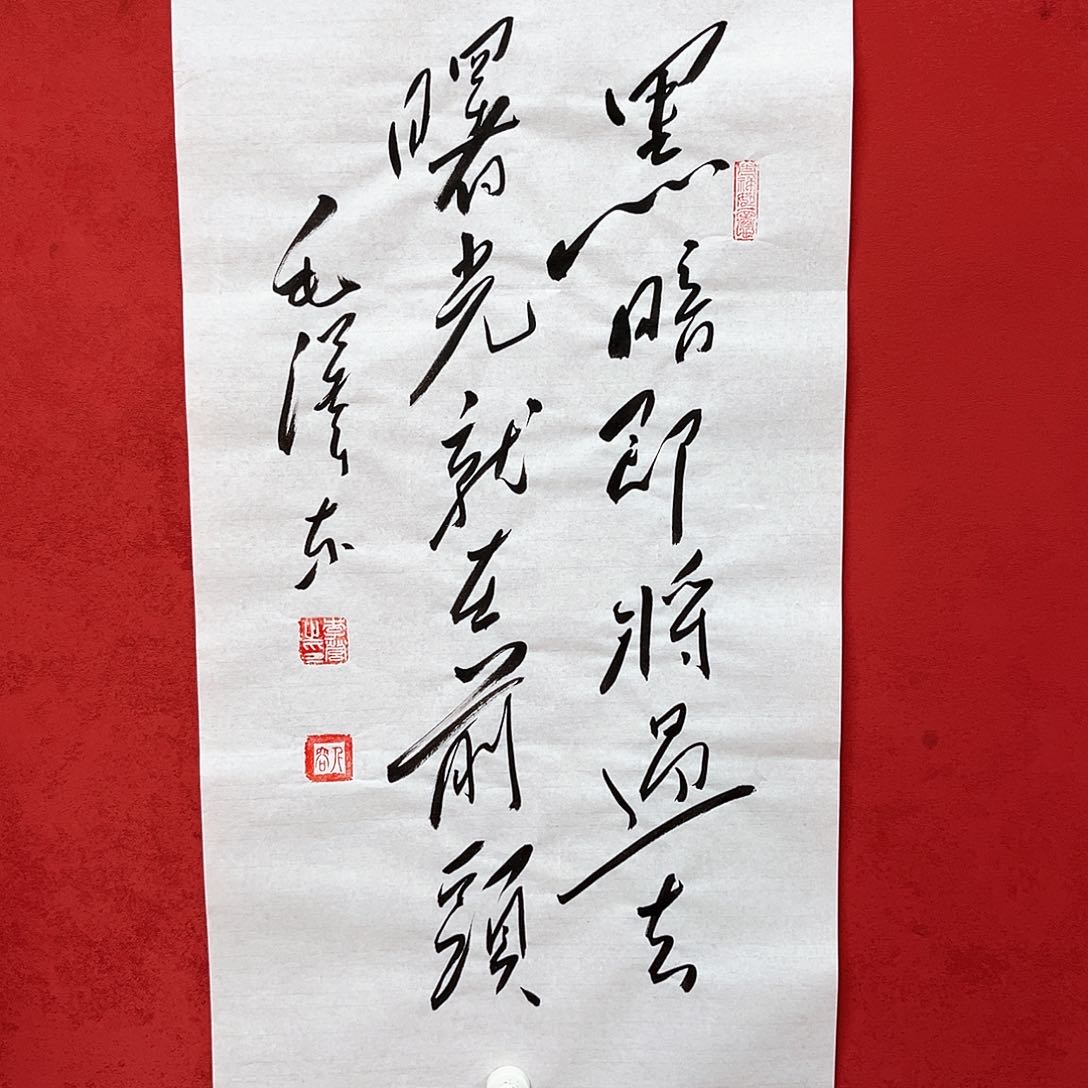 黑暗即将過去
曙光就在前頭
毛澤东